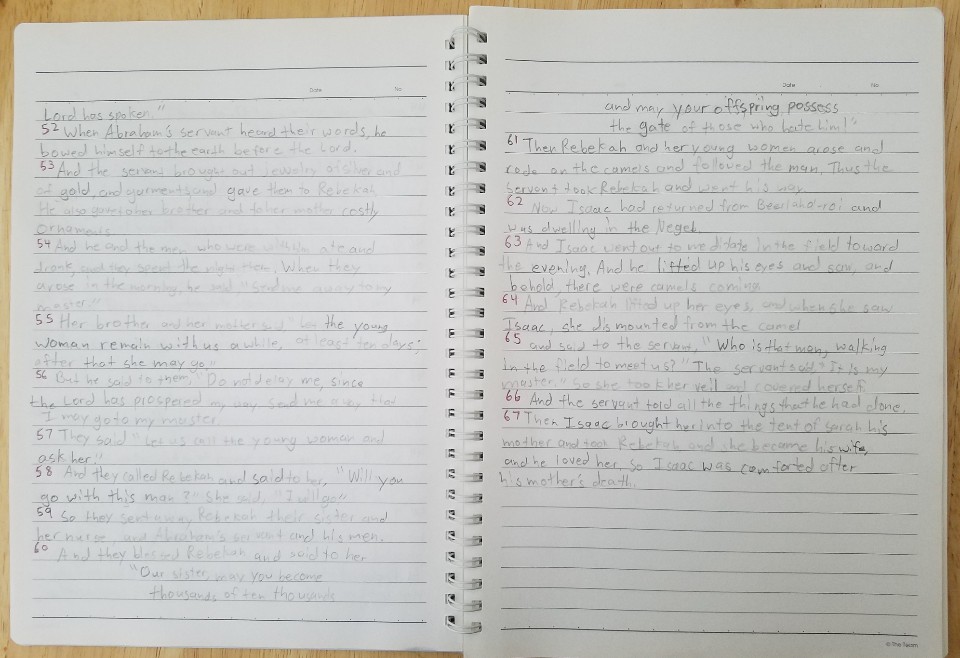 Date No
Lord has spoken."
52 When Abraham's servant heard their words, he
bowed himself to the earth before the Lord.
53 And the servant brought out jewelry of silver and
of gold, and garments and gave them to Rebekah
He also gave to her brother and to her mother costly
ornaments.
54 And he and the men who were with him ate and
drank, and they spent the night there. When they
arose in the morning, he said "Send me away to my
master."
55 Her brother and her mother said "Let the young
woman remain with us a while, at least ten days;
after that she may go."
56 But he said to them, "Do not delay me, since
the Lord has prospered my way Send me away that
I may go to my master.
57 They said "Let us call the young woman and
ask her."
58 And they called Rebekah and said to her, "Will you
go with this man?" She said, "I will go"
59 So they sent away Rebekah their sister and
her nurse, and Abraham's servant and his men.
60 And they blessed Rebekah and said to her
"Our sister, may you become
thousands of ten thousands
Date No
and may your offspring possess
the gate of those who hate him!"
61 Then Rebekah and her young women arose and
rode on the camels and followed the man, Thus the
servant took Rebekah and went his way.
62 Now Isaac had returned from Beerlahai-roi and
was dwelling in the Negeb.
63 And Isaac went out to meditate in the field toward
the evening. And he lifted up his eyes and saw, and
behold, there were camels coming.
64 And Rebekah lifted up her eyes, and when she saw
Isaac, she dismounted from the camel
65 and said to the servant, "Who is that man, walking
in the field to meet us?" The servant said "It is my
master." So she took her veil and covered herself.
66 And the servant told all the things that he had done.
67 Then Isaac brought her into the tent of Sarah his
mother and took Rebekah and she became his wife,
and he loved her. So Isaac was comforted after
his mother's death.